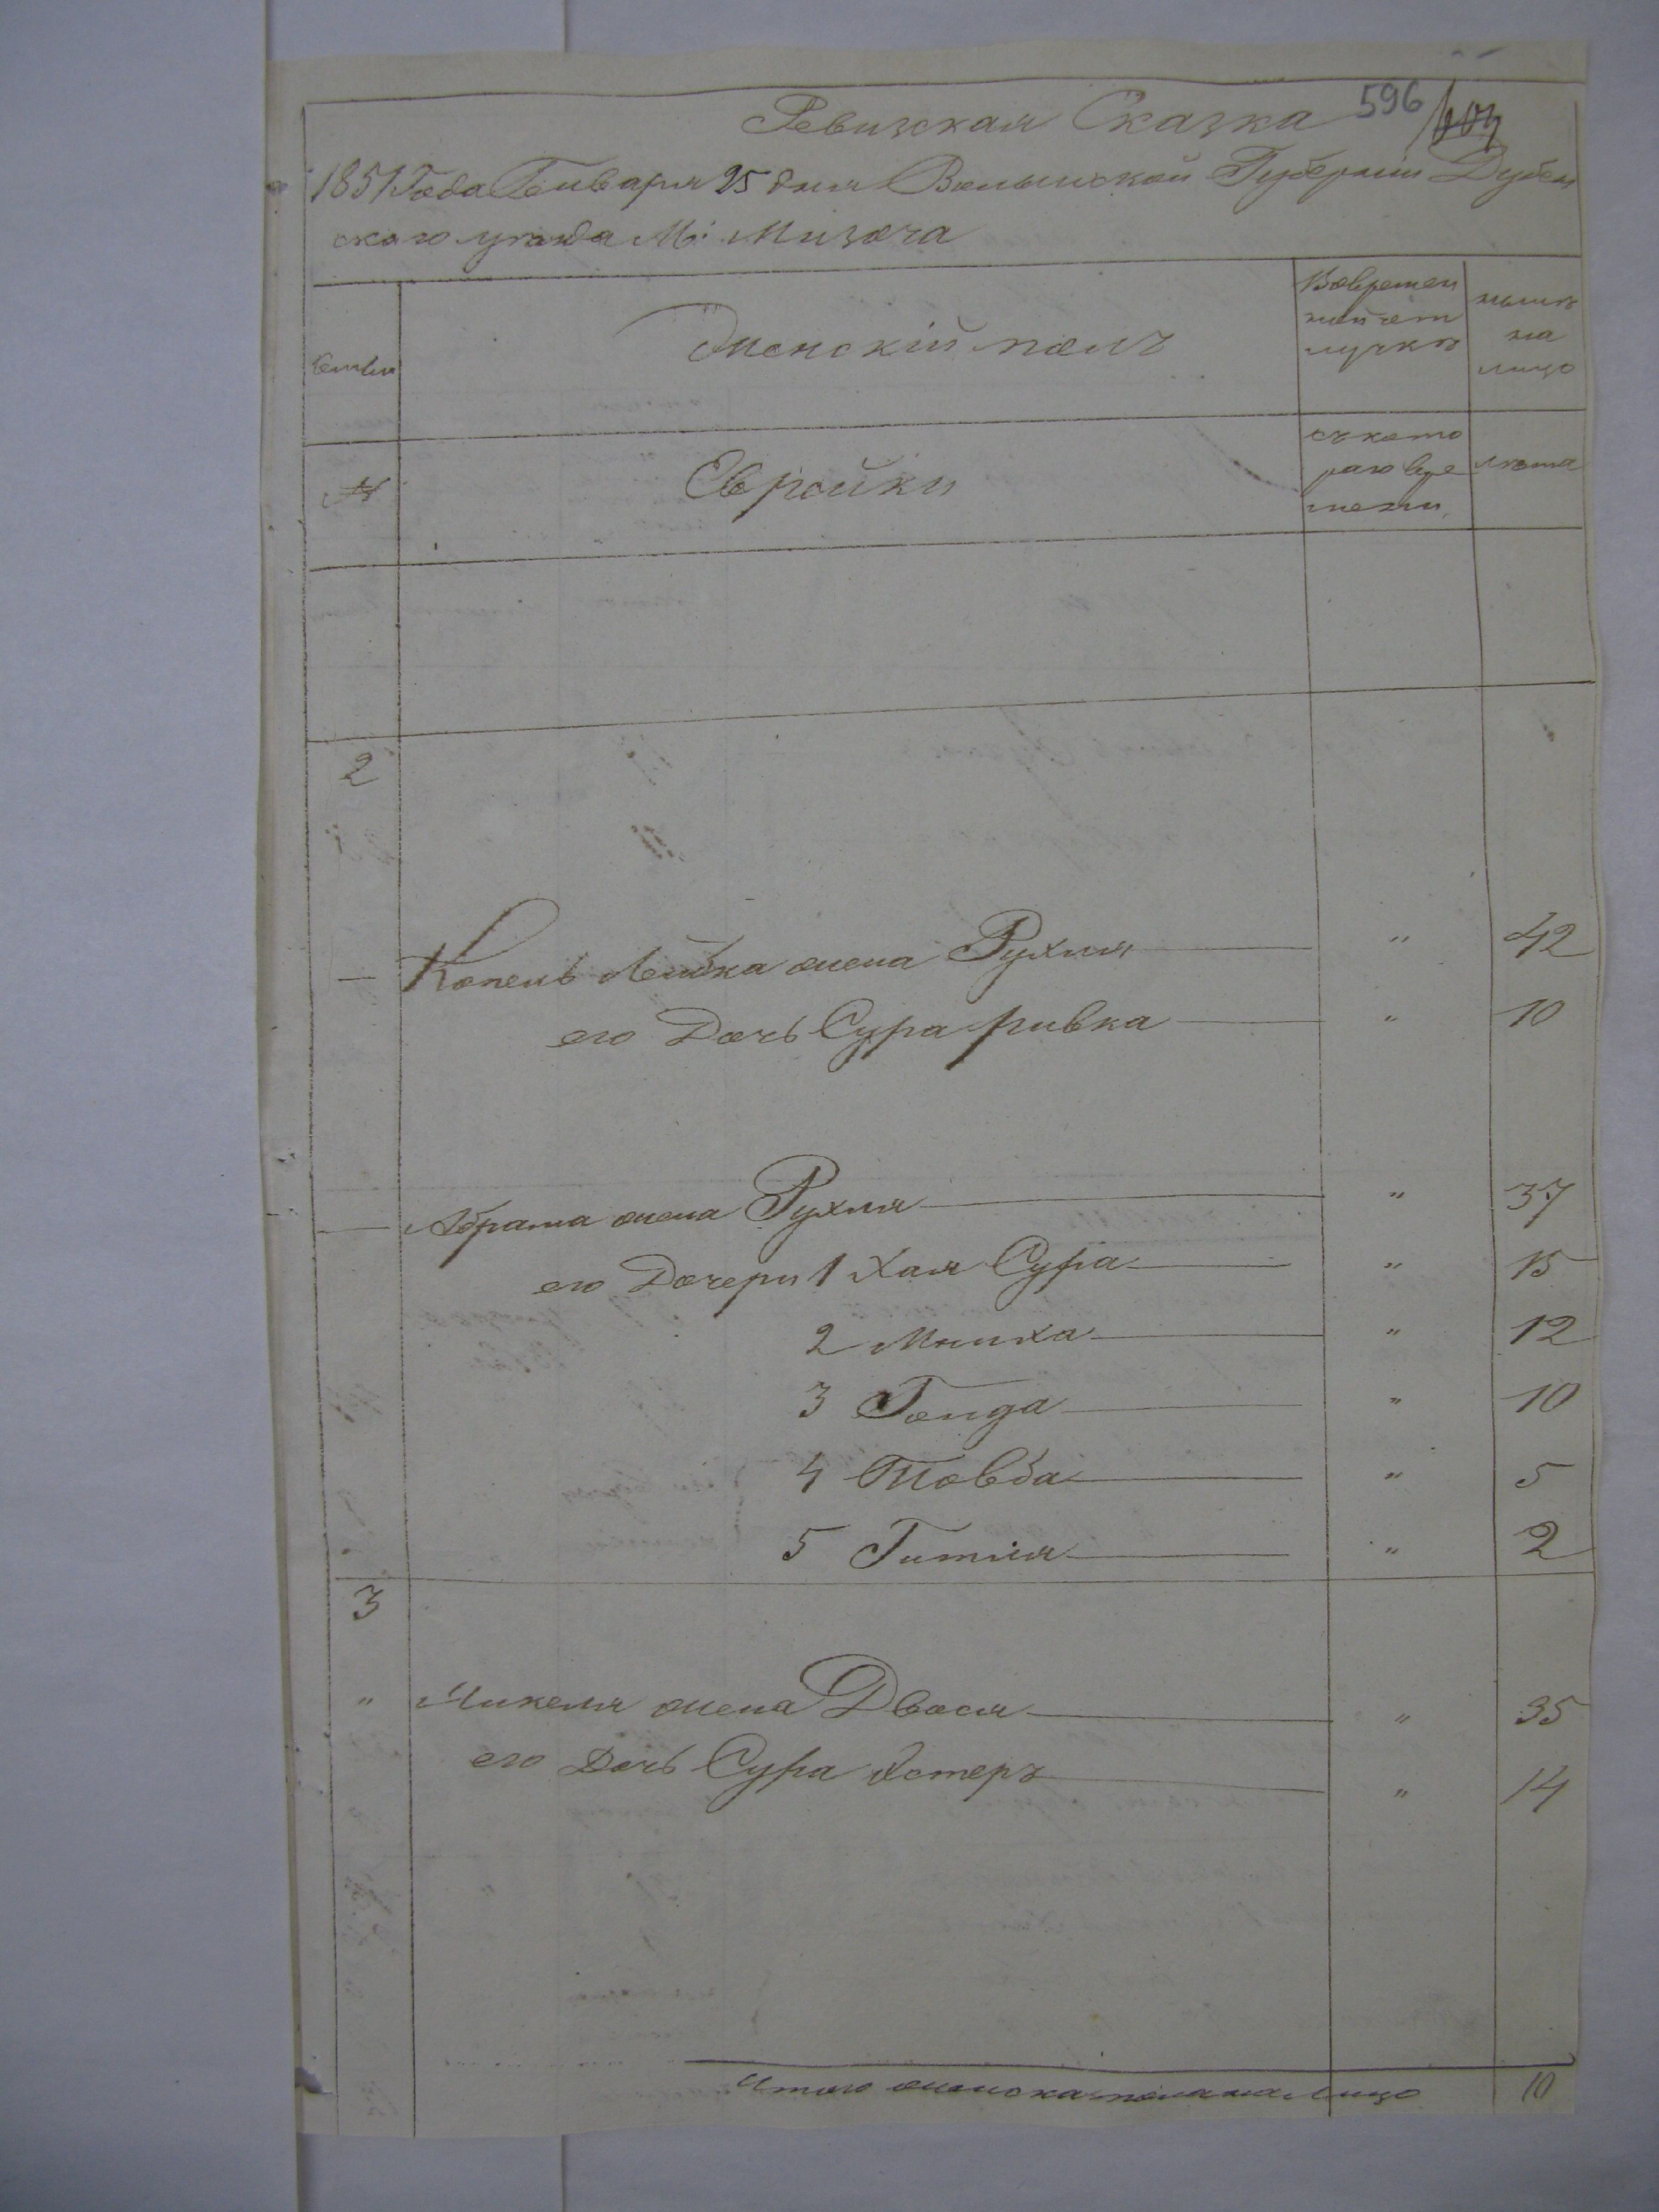 596
Ревизская Сказка
1851 Года Генваря 25 дня Волынской Губернiи Дубен
скаго уезда М: Мизоча
Семьи
Женскiй полъ
Вовремен
ной от
лучкѣ
нынѣ
на
лицо
№
Еврейки
съ кото
раго вре
мени
лѣта
2
Копель Лейбка жена Рухля " 42
его Дочь Сура ривка " 10
Абрама жена Рухля " 37
его Дочери 1 Хая Сура " 15
2 " 12
3 Генда " 10
4 Товба " 5
5 Гитля " 2
3
" Микеля жена Двося " 35
его Дочь Сура Эстеръ " 14
Итого женска пола на Лицо 10